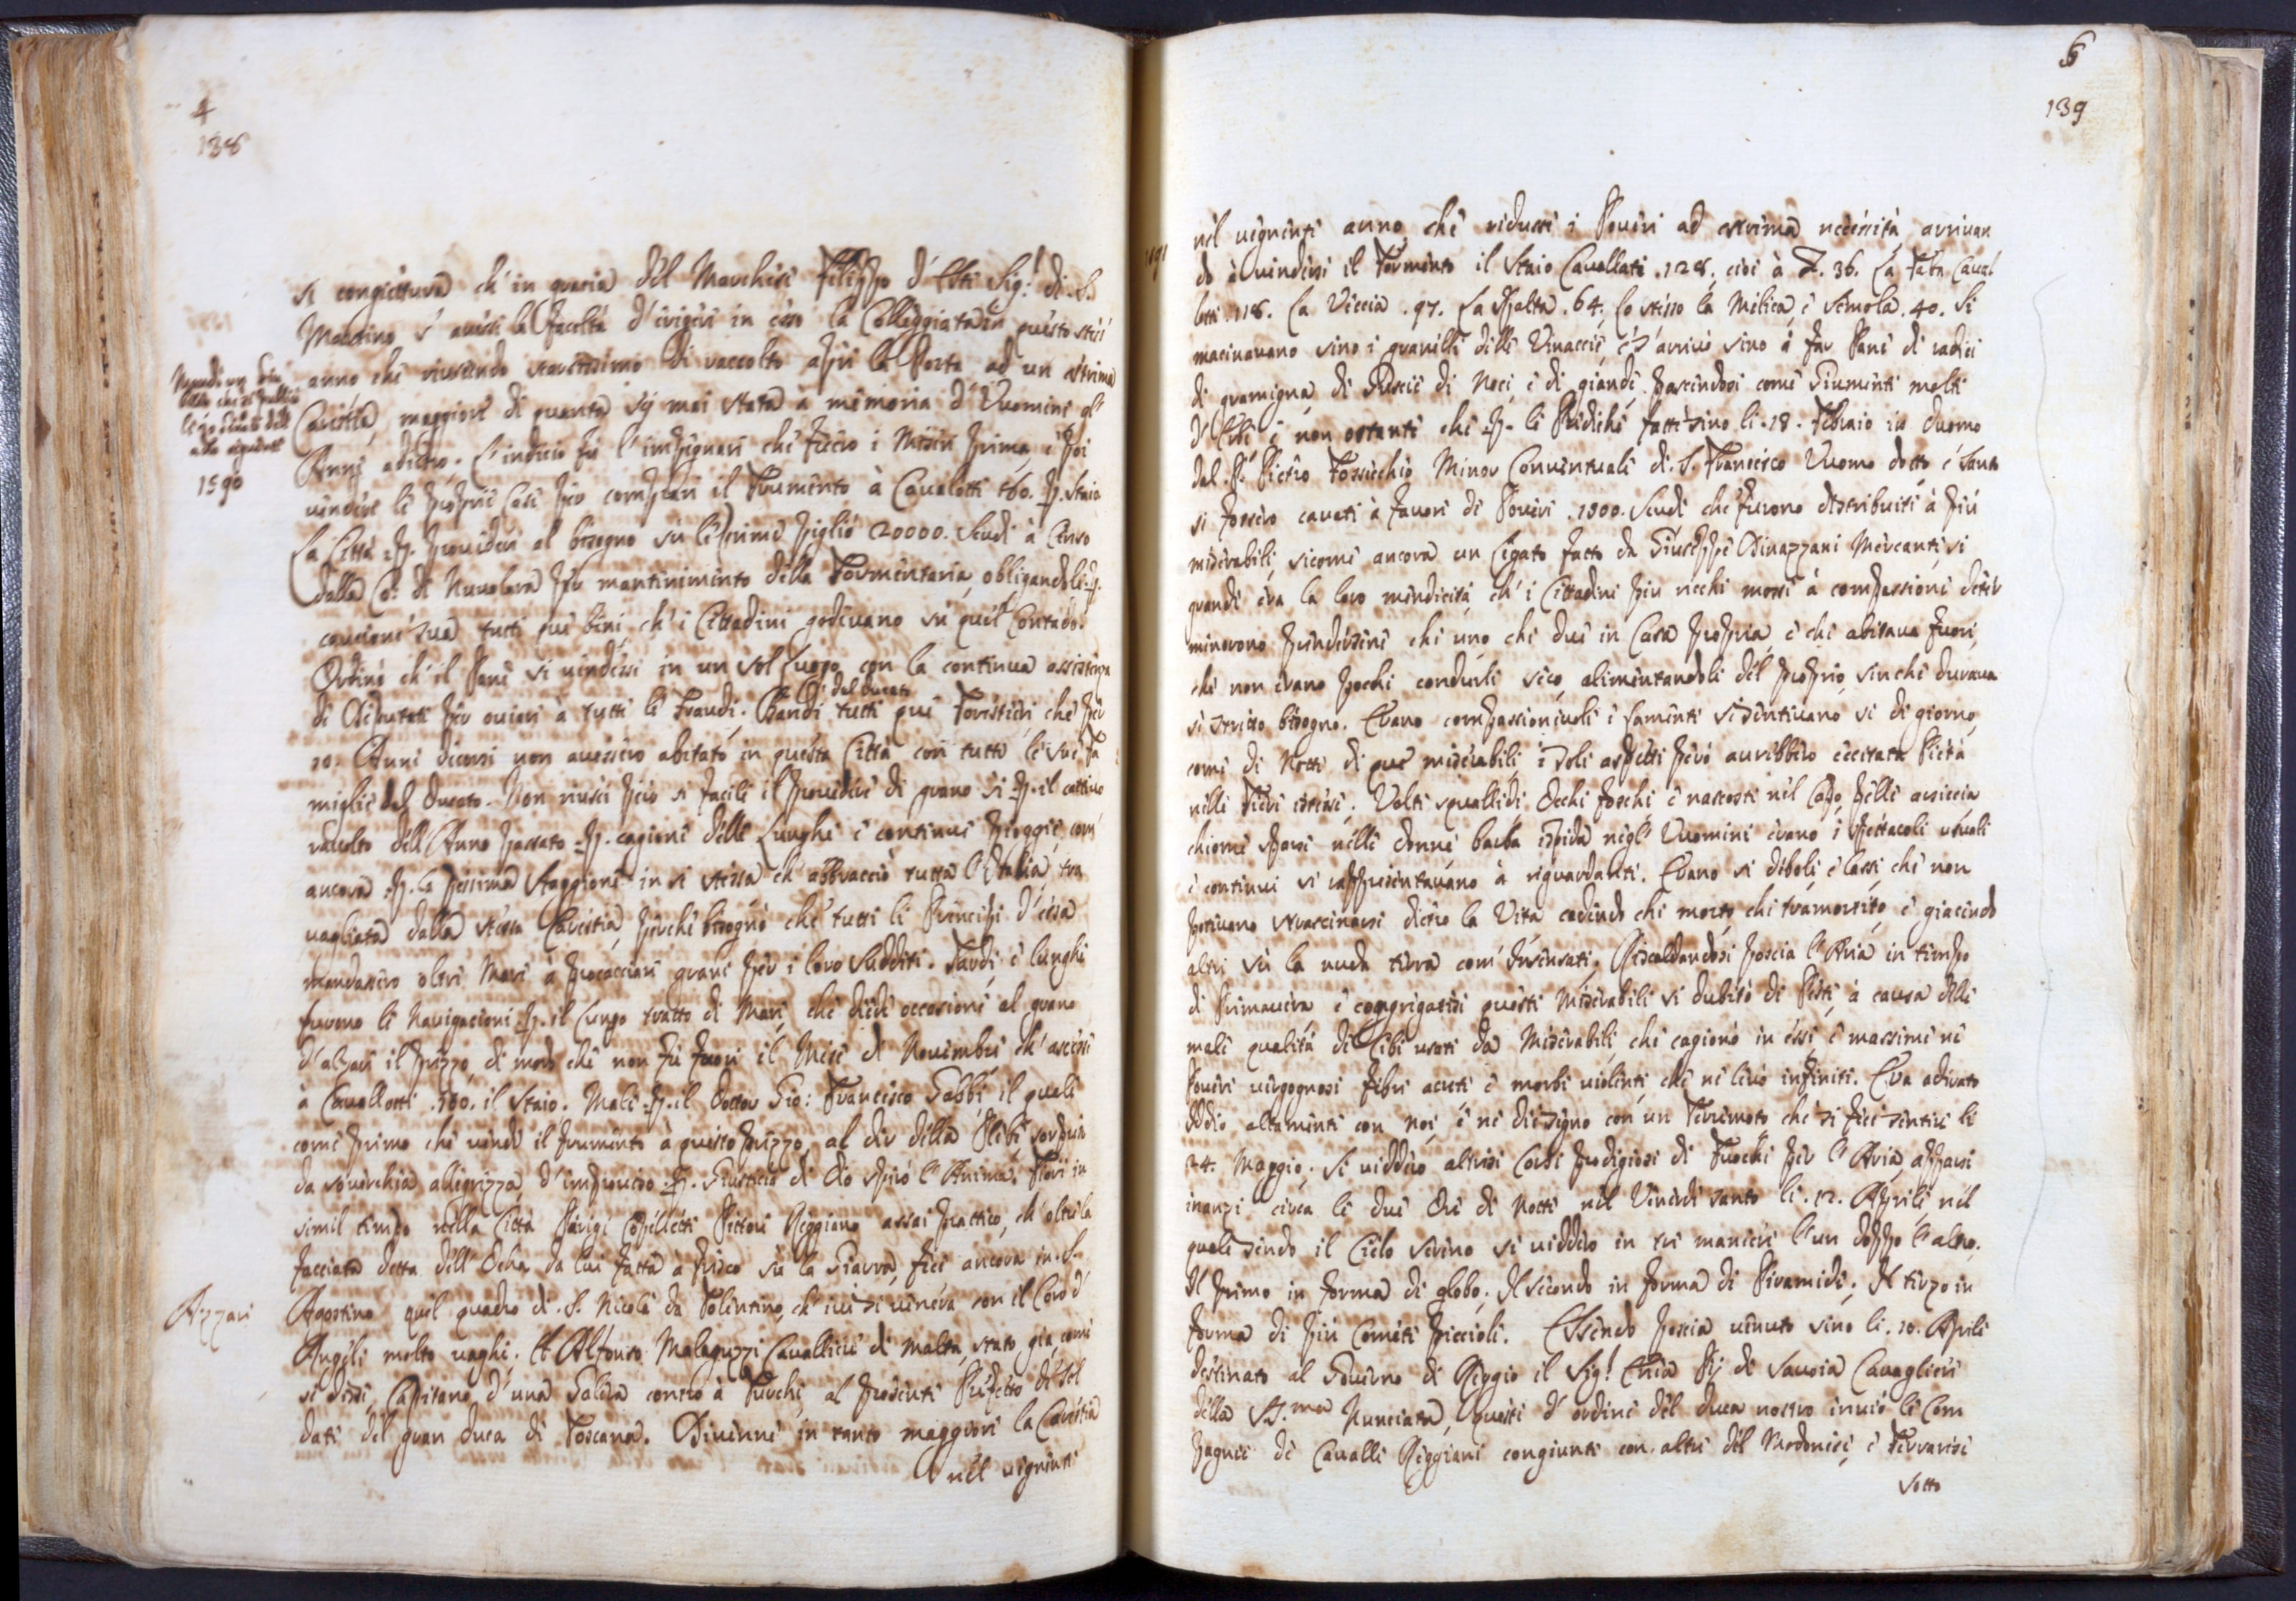 4
138
si congiettura ch' in gratia del Marchese Filippo d' Este Sig.r di S.
Martino s' avesse la facoltà d' erigere in esso la Colleggiata in questo stess'
anno che riuscendo scarsissimo di raccolto aprì la Porta ad un estrema
Carestia, maggiore di quanta sij mai stata à memoria d' Uuomini gl'
Anni adietro. L' indicio fù l' impegnare che fecero i Miseri prima, e poi
1590
vendere le proprie Case per comprare il Frumento à Cavalotti 160. p. staio
La Città p. provedere al bisogno sù le prime pigliò 20000. Scudi à Censo
dalla Cà di Nuvolara per mantenimento della Formentaria, obligandoli p.
caucione sua tutti què beni, ch' i Cittadini godevano sù quel Contado.
Ordinò ch' il Pane si vendesse in un sol luogo con la continua assistenza
di Deputati per ouiare à tutti le fraudi. Bandì tutti què Forestieri, che per
del ducato
10. Anni decorsi non auessero abitato in questa Città con tutte le sue fa
miglie dal Ducato. Non riuscì però sì facile il provedere di grano sì p. il cattiuo
raccolto dell' Anno passato p. cagione delle lunghe e continue pioggie, com'
ancora p. la pessima staggione in sè stessa ch' abbracciò tutta l' Italia, tra
uagliata dalla stessa Carestia, perche bisognò che tutti li Principi d' essa
mandassero oltre Mare à procacciare grani per i loro Sudditi. Tarde, e lunghe
furono le Navigacioni p. il lungo tratto di Mare, che diede occasione al grano
d' alzare il prezzo, di modo che non fù fuori il Mese di Novembre ch' ascese
à Cavallotti 100. il Staio. Male p. il Dottor Gio: Francesco Gabbi, il quale
come primo che vendè il frumento à questo prezzo, al dir della Plebe sorpreso
da soverchia allegrezza, d' improuiso p. Giusticia di Dio spirò l' Anima. Fiorì in
simil tempo nella Città Parigi Pittore Reggiano assai prattico, ch' oltre la
facciata detta dell' Ocha da lui fatta à fresco sù la Giarra, fece ancora in S.
Agostino quel quadro di S. Nicola da Tolentino, ch' iui si venera con il Coro d'
Angeli molto uaghi. Et Alfonso Malaguzzi Cavalliere di Malta, stato già, come
si disse, Capitano d' una Galera contro à Turchi, al presente Prefetto de' Sol
dati del gran Duca di Toscana. Divenne in tanto maggiore la Carestia
nel vegnente
6
139
1591
nel vegnente anno che ridusse i Poueri ad estrema necessità arriuan
do à vendersi il Formento il Staio Cavallotti 128. cioè à L. 36. La Faba Caval
lotti 118. La Veccia 97. La Spelta 64. Lo stesso la Melica, e Semola 40. Si
macinavano sino i granelli delle Vinaccie, e s' arriuò sino à far Pane di radici
di gramigna, di Guscie di Noci, e di giande, pascendosi come Giumenti molti
d' Erbe e non ostante che p. le Prediche fattesi sino li 18. Febraio in Duomo
dal P. Pietro Fossecchio Minor Conventuale di S. Francesco Uuomo dotto e Santo
si fossero cauati à fauore de Poueri 1500. Scudi che furono distribuiti à più
miserabili, sicome ancora un Legato fatto da Giuseppe Dinazzani Mercante, sì
grande era la loro mendicità, ch' i Cittadini piu ricchi mossi à compassione deter
minarono prendersene chi uno, chi due in Casa propria, e chi abitaua fuori,
che non erano pochi condurli seco, alimentandoli del proprio, sin che durava
sì stretto bisogno. Erano compassioneuoli i lamenti si sentivano sì di giorno,
come di Notte di què miserabili, i soli aspetti però avrebbero eccitata Pietà
nelle Fiere istesse. Volti squallidi, Occhi foschi e nascosti nel Capo, pelle arsiccia
chiome sparse nelle donne, barba ispida negl' Uuomini erano i spettacoli usuali
e continui si rappresentavano à riguardanti. Erano sì deboli, e lassi, che non
potevano strascinarsi dietro la Vita, cadendo chi morto, chi tramortito, e giacendo
altri sù la nuda terra com' insensati. Riscaldandosi poscia l' Aria in tempo
di Primauera e congregatisi questi Miserabili si dubitò di Peste, à causa delle
male qualità de Cibi usati da Miserabili, che cagionò in essi, e massime ne
Poueri vergognosi febri acute e morbi violenti, che ne levò infiniti. Era adirato
Iddio altamente con noi, e ne diè segno con un Terremoto che si fece sentire li
24. Maggio. Si viddero altresi Corsi prodigiosi di Fuochi per l' Aria, apparsi
inanzi circa le due Ore di Notte nel Venerdi santo li 12. Aprile, nel
quale sendo il Cielo sereno si viddero in tre maniere l' un doppo l' altro.
Il primo in forma di globo. Il secondo in forma di Piramide. Il terzo in
forma di più Comete piccioli. Essendo poscia venuto sino li 10. Aprile
destinato al Gouerno di Reggio il Sig.r Enea Pij di Savoia Cavagliere
della SS.ma Nunciata, questi d' ordine del Duca nostro inviò le Com
pagnie de Cavalli Reggiani congiunti con altri del Modonese, e Ferrarese
sotto